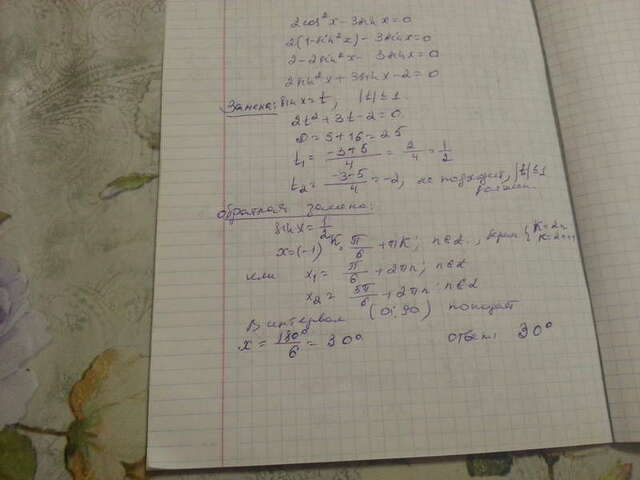 2cos²x - 3sinx = 0
2(1-sin²x) - 3sinx = 0
2 - 2sin²x - 3sinx = 0
2sin²x + 3sinx - 2 = 0
Замена: sinx = t, |t| ≤ 1
2t² + 3t - 2 = 0
D = 9 + 16 = 25
t₁ = (-3+5)/4 = 2/4 = 1/2
t₂ = (-3-5)/4 = -2, не подходит, |t| ≤ 1
Обратная замена:
sinx = 1/2
x = (-1)^k π/6 + πk; n∈Z, { k=2n
k=2n+1
или x₁ = π/6 + 2πn; n∈Z
x₂ = 5π/6 + 2πn; n∈Z
В интервал (0; 90) попадает
x = 180°/6 = 30° ответ: 30°